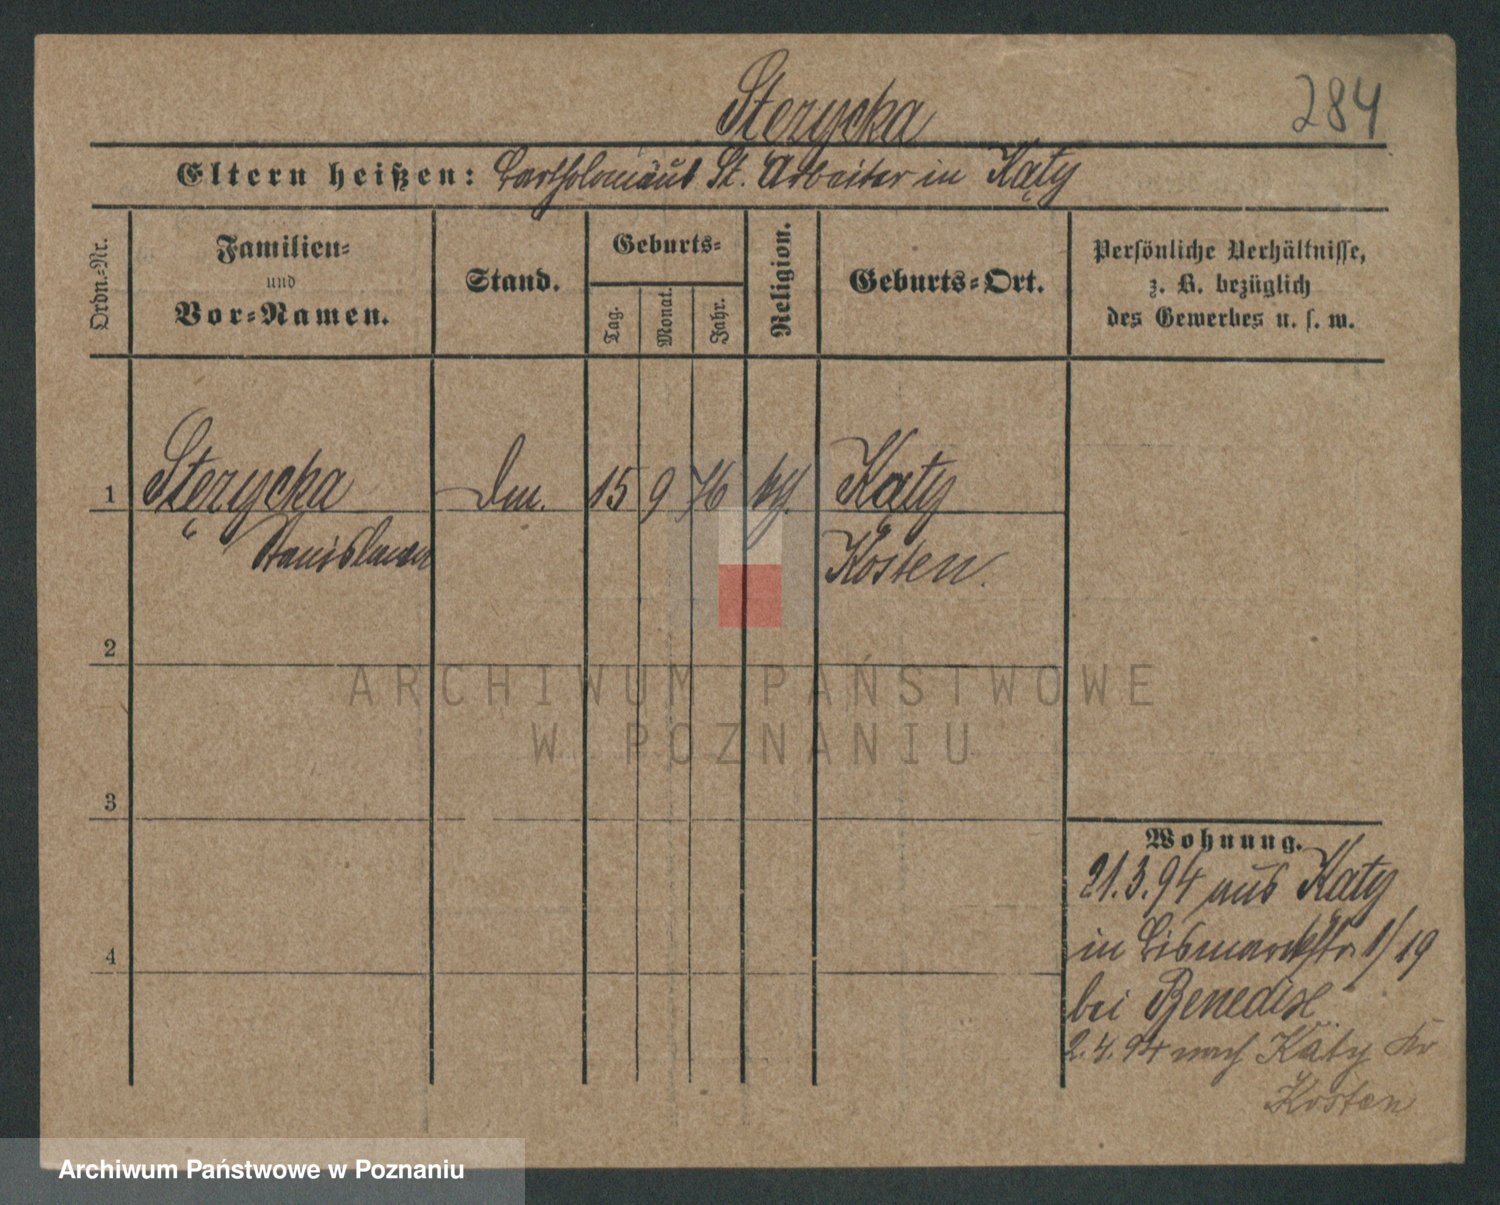 284
Sterycka
Eltern heißen: Bartholomäus St. Arbeiter in Kąty
Ordn.-Nr.
Familien-
und
Vor-Namen.
Stand.
Geburts-
Tag.
Monat.
Jahr.
Religion.
Geburts-Ort.
Persönliche Verhältnisse,
z. B. bezüglich
des Gewerbes u. s. w.
1 Sterycka 15 9 76 Kąty
Kosten
2
3
4
Wohnung.
21.3.94 aus Kąty
in Bismarckstr. 1/19
bei
2.4.94 nach Kąty Kr
Kosten
ARCHIWUM PAŃSTWOWE
W POZNANIU
Archiwum Państwowe w Poznaniu